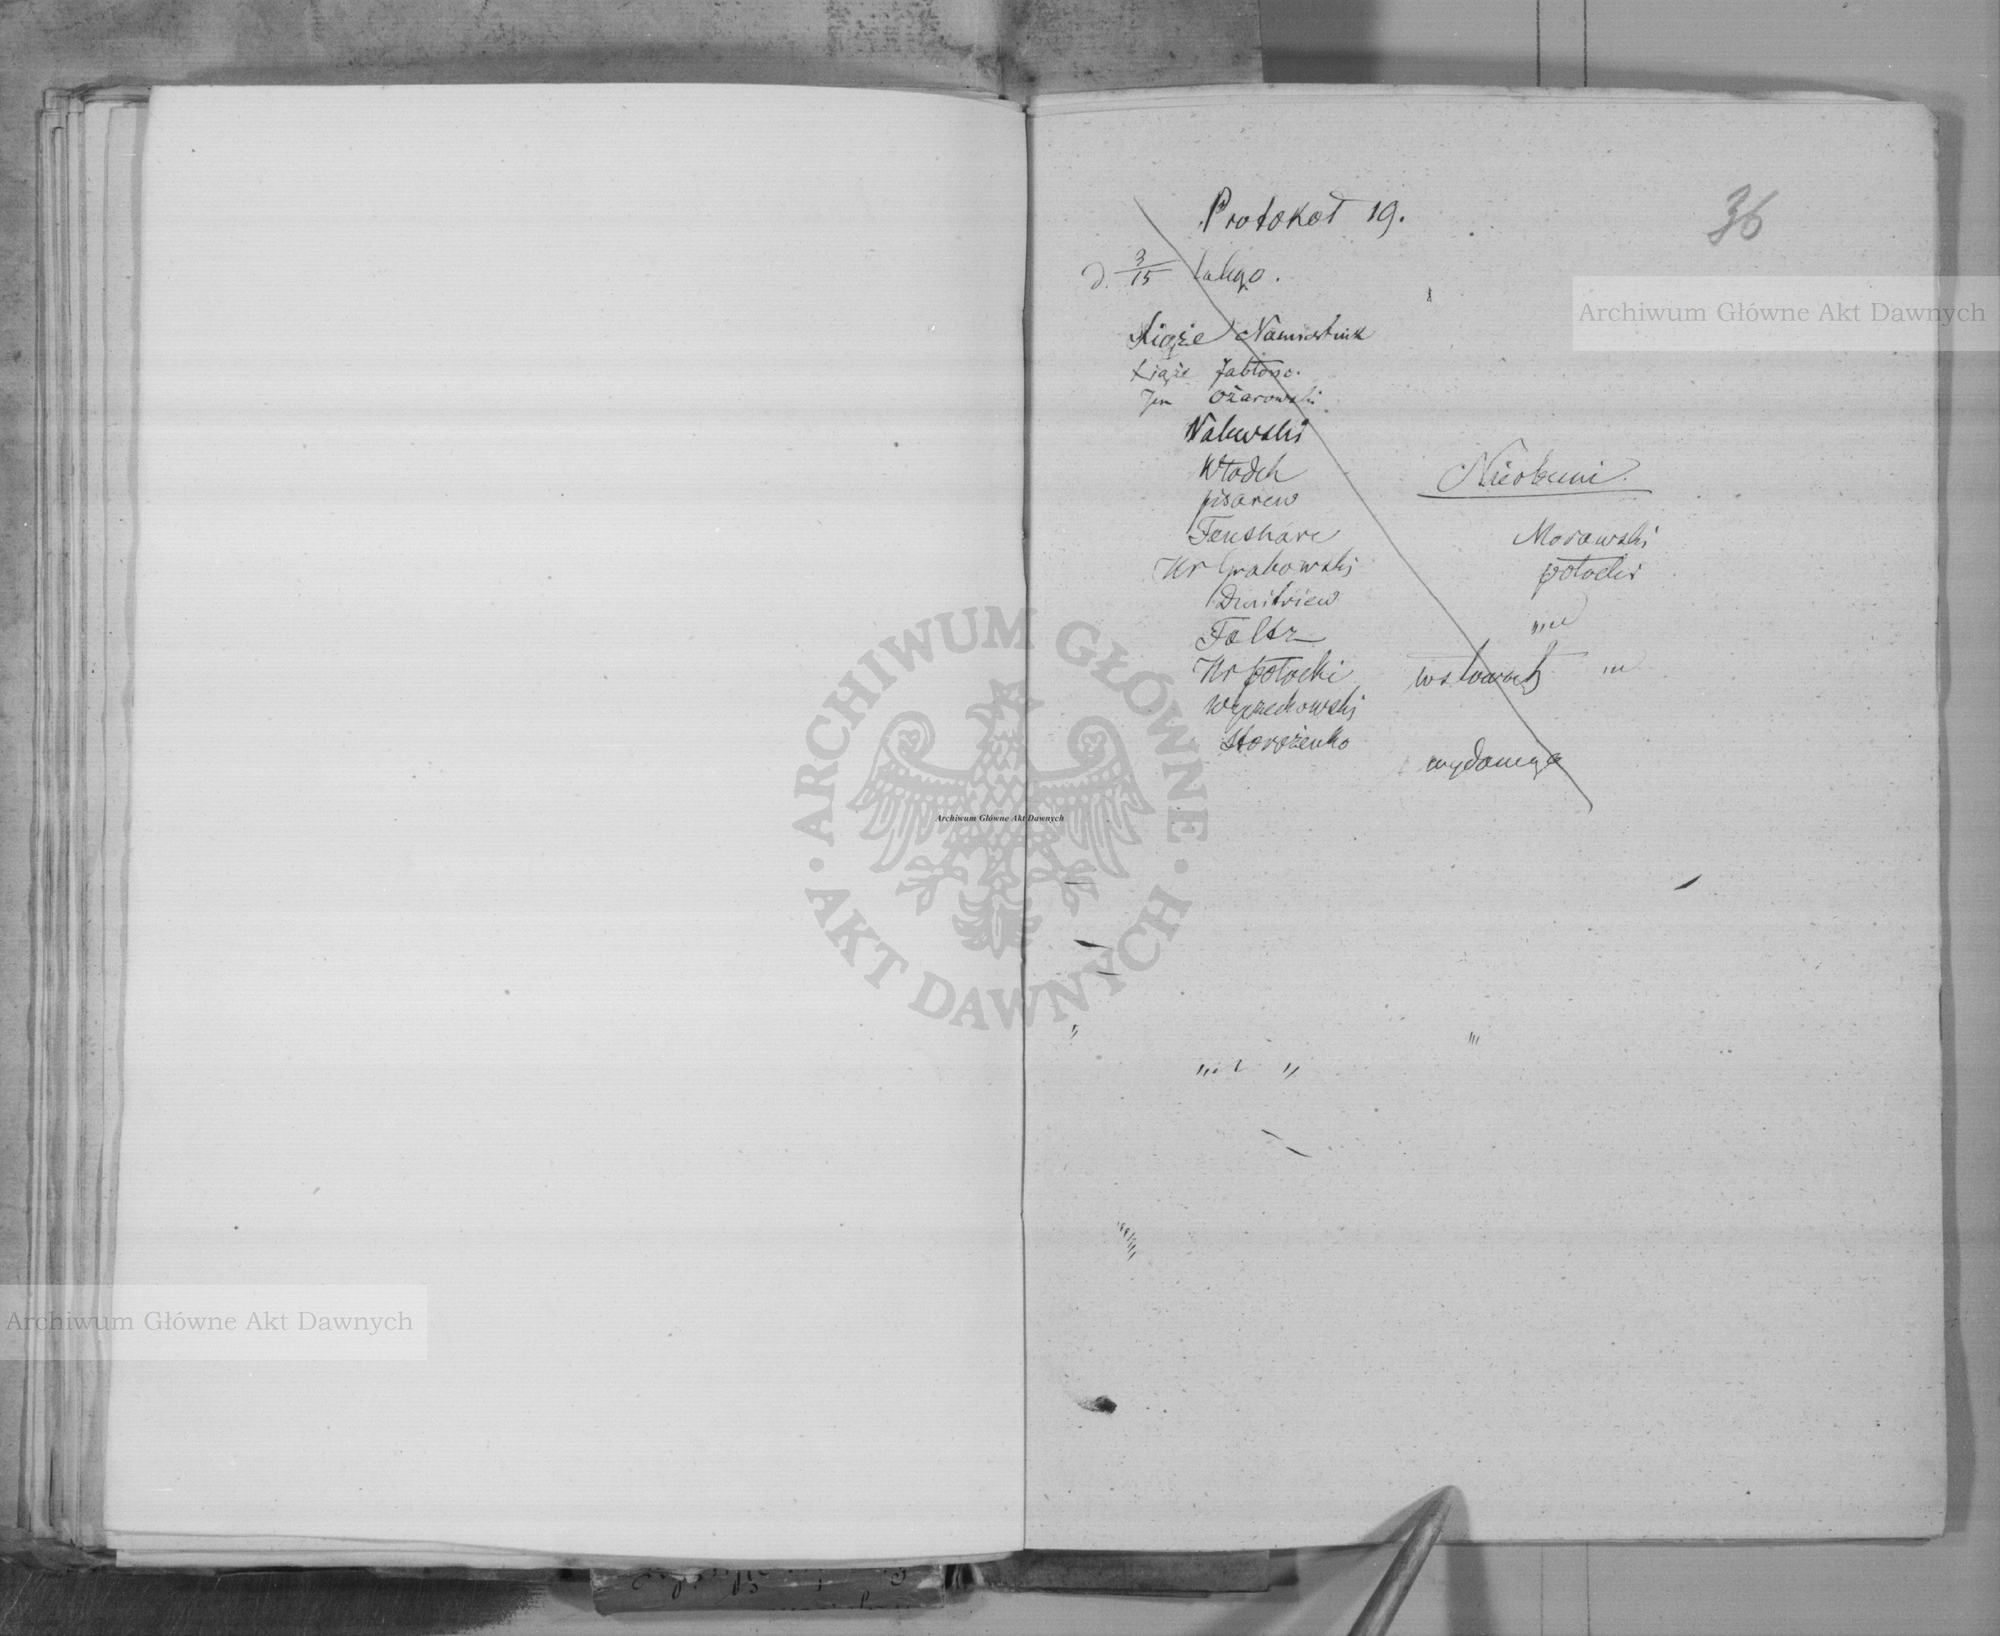 36
Protokół 19.
d. 3/15 lutego.
Książe Namiestnik
Książe Jabłono.
Jen Ożarowski
Walewski
Włodek
pisarew
Fenshave
Hr Grabowski
Dmitriew
Faltz
Hr potocki
Wyczechowski
Storożenko
Nieobecni.
Morawski
potocki
wydanego
Archiwum Główne Akt Dawnych
Archiwum Główne Akt Dawnych
Archiwum Główne Akt Dawnych
ARCHIWUM GŁÓWNE · AKT DAWNYCH ·